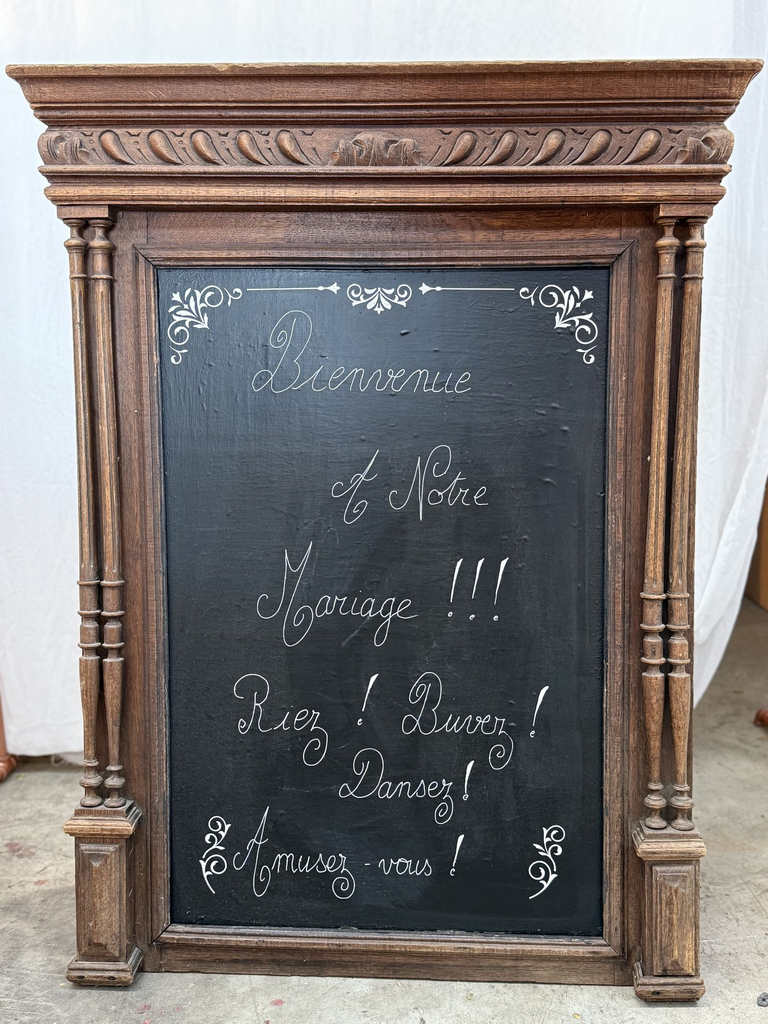 Bienvenue
A Notre
Mariage !!!
Riez ! Buvez !
Dansez !
Amusez-vous !